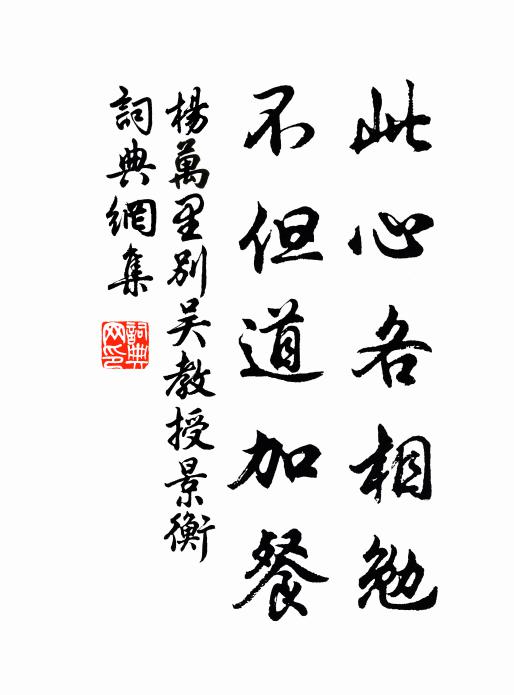 此心各相勉
不但道加餐
楊萬里別吳教授景衡
詞典網集
詞典網印